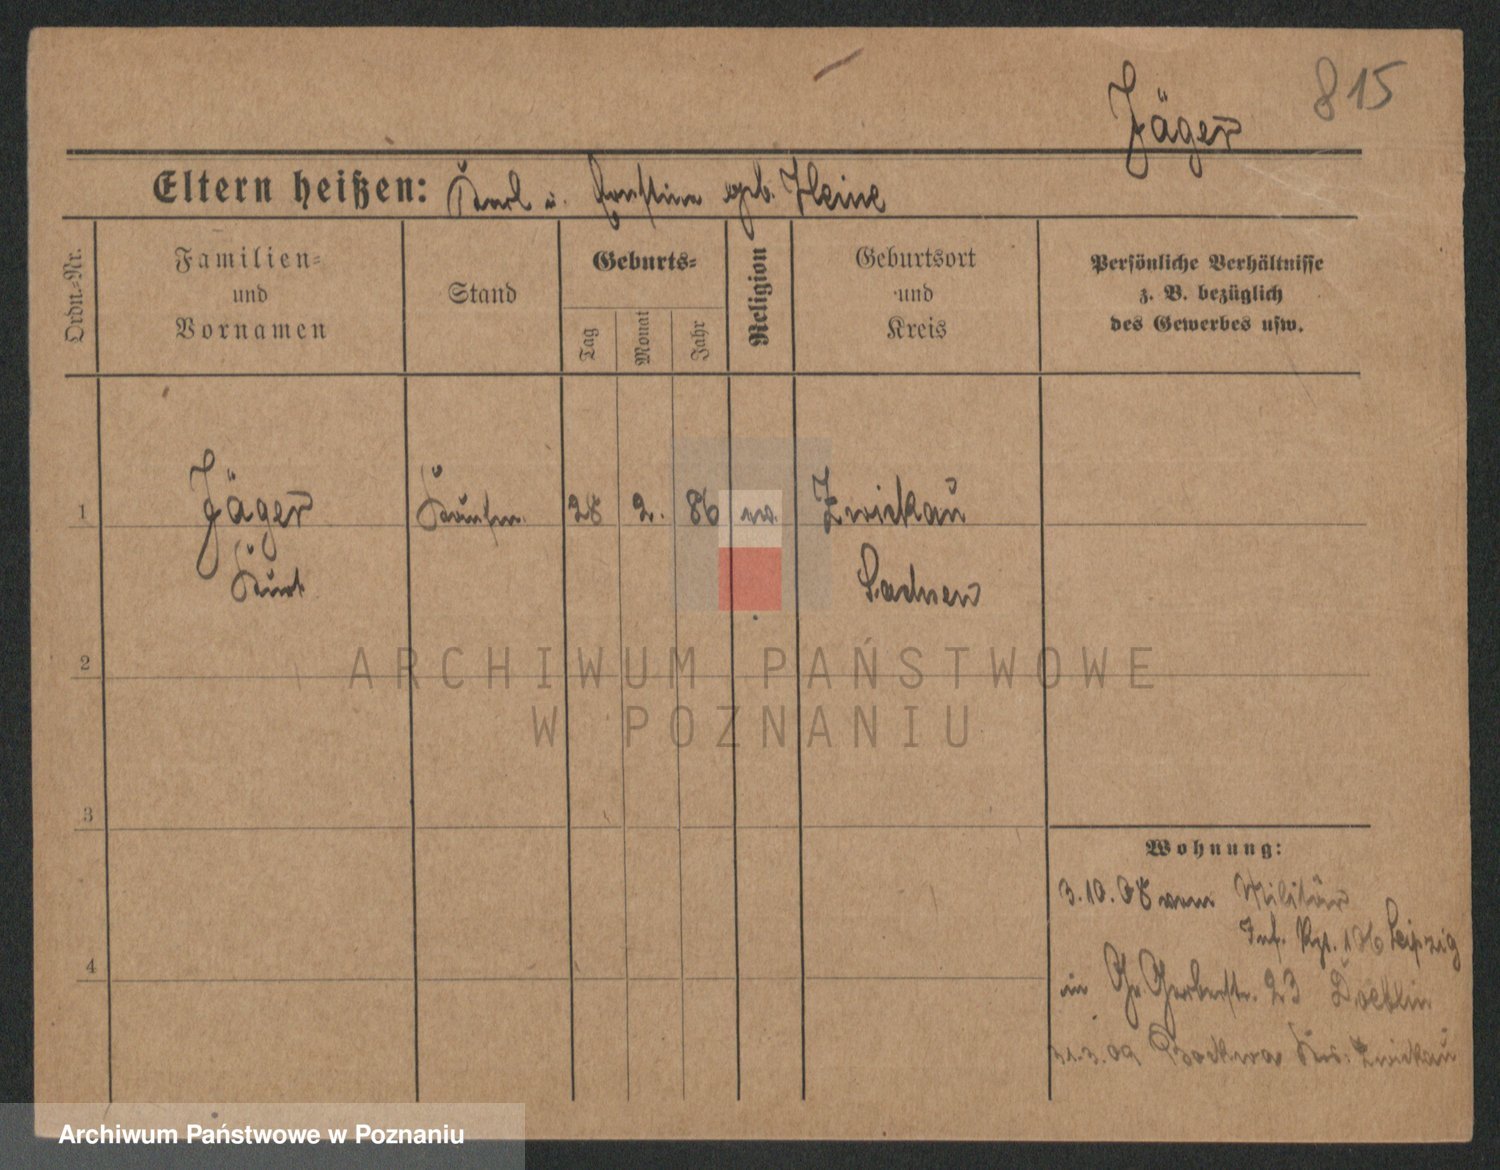 815
Jäger
Eltern heißen: Karl u. Ernstine geb. Heine
Ordn.-Nr.
Familien-
und
Vornamen
Stand
Geburts-
Tag
Monat
Jahr
Religion
Geburtsort
und
Kreis
Persönliche Verhältnisse
z. B. bezüglich
des Gewerbes usw.
1
Jäger
Kurt
Kaufm.
28
2.
86
Zwickau
Sachsen
2
3
4
Wohnung:
3.10.08 vom Militär
Inf. Rgt. Leipzig
in Gr. Gerberstr. 23
31.3.09 Bockwa Krs. Zwickau
ARCHIWUM PAŃSTWOWE
W POZNANIU
Archiwum Państwowe w Poznaniu